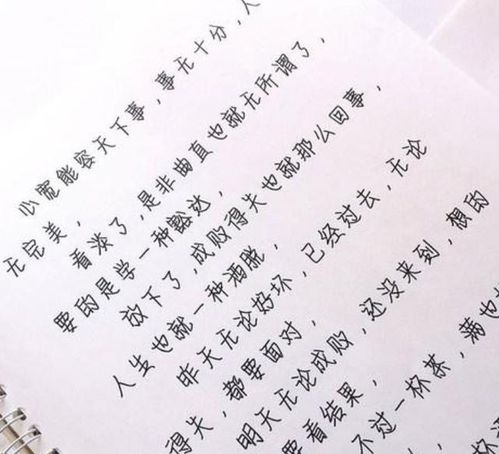 心宽能容天下事，事无十分，人
无完美，
看淡了，是非曲直也就无所谓了，
要的是学一种豁达，
放下了，成败得失也就那么回事，
人生也就一种洒脱，
昨天无论好坏，已经过去，无论
得失，都要面对，
明天无论成败，还没来到，想的
要看结果，
不过一杯茶，满也